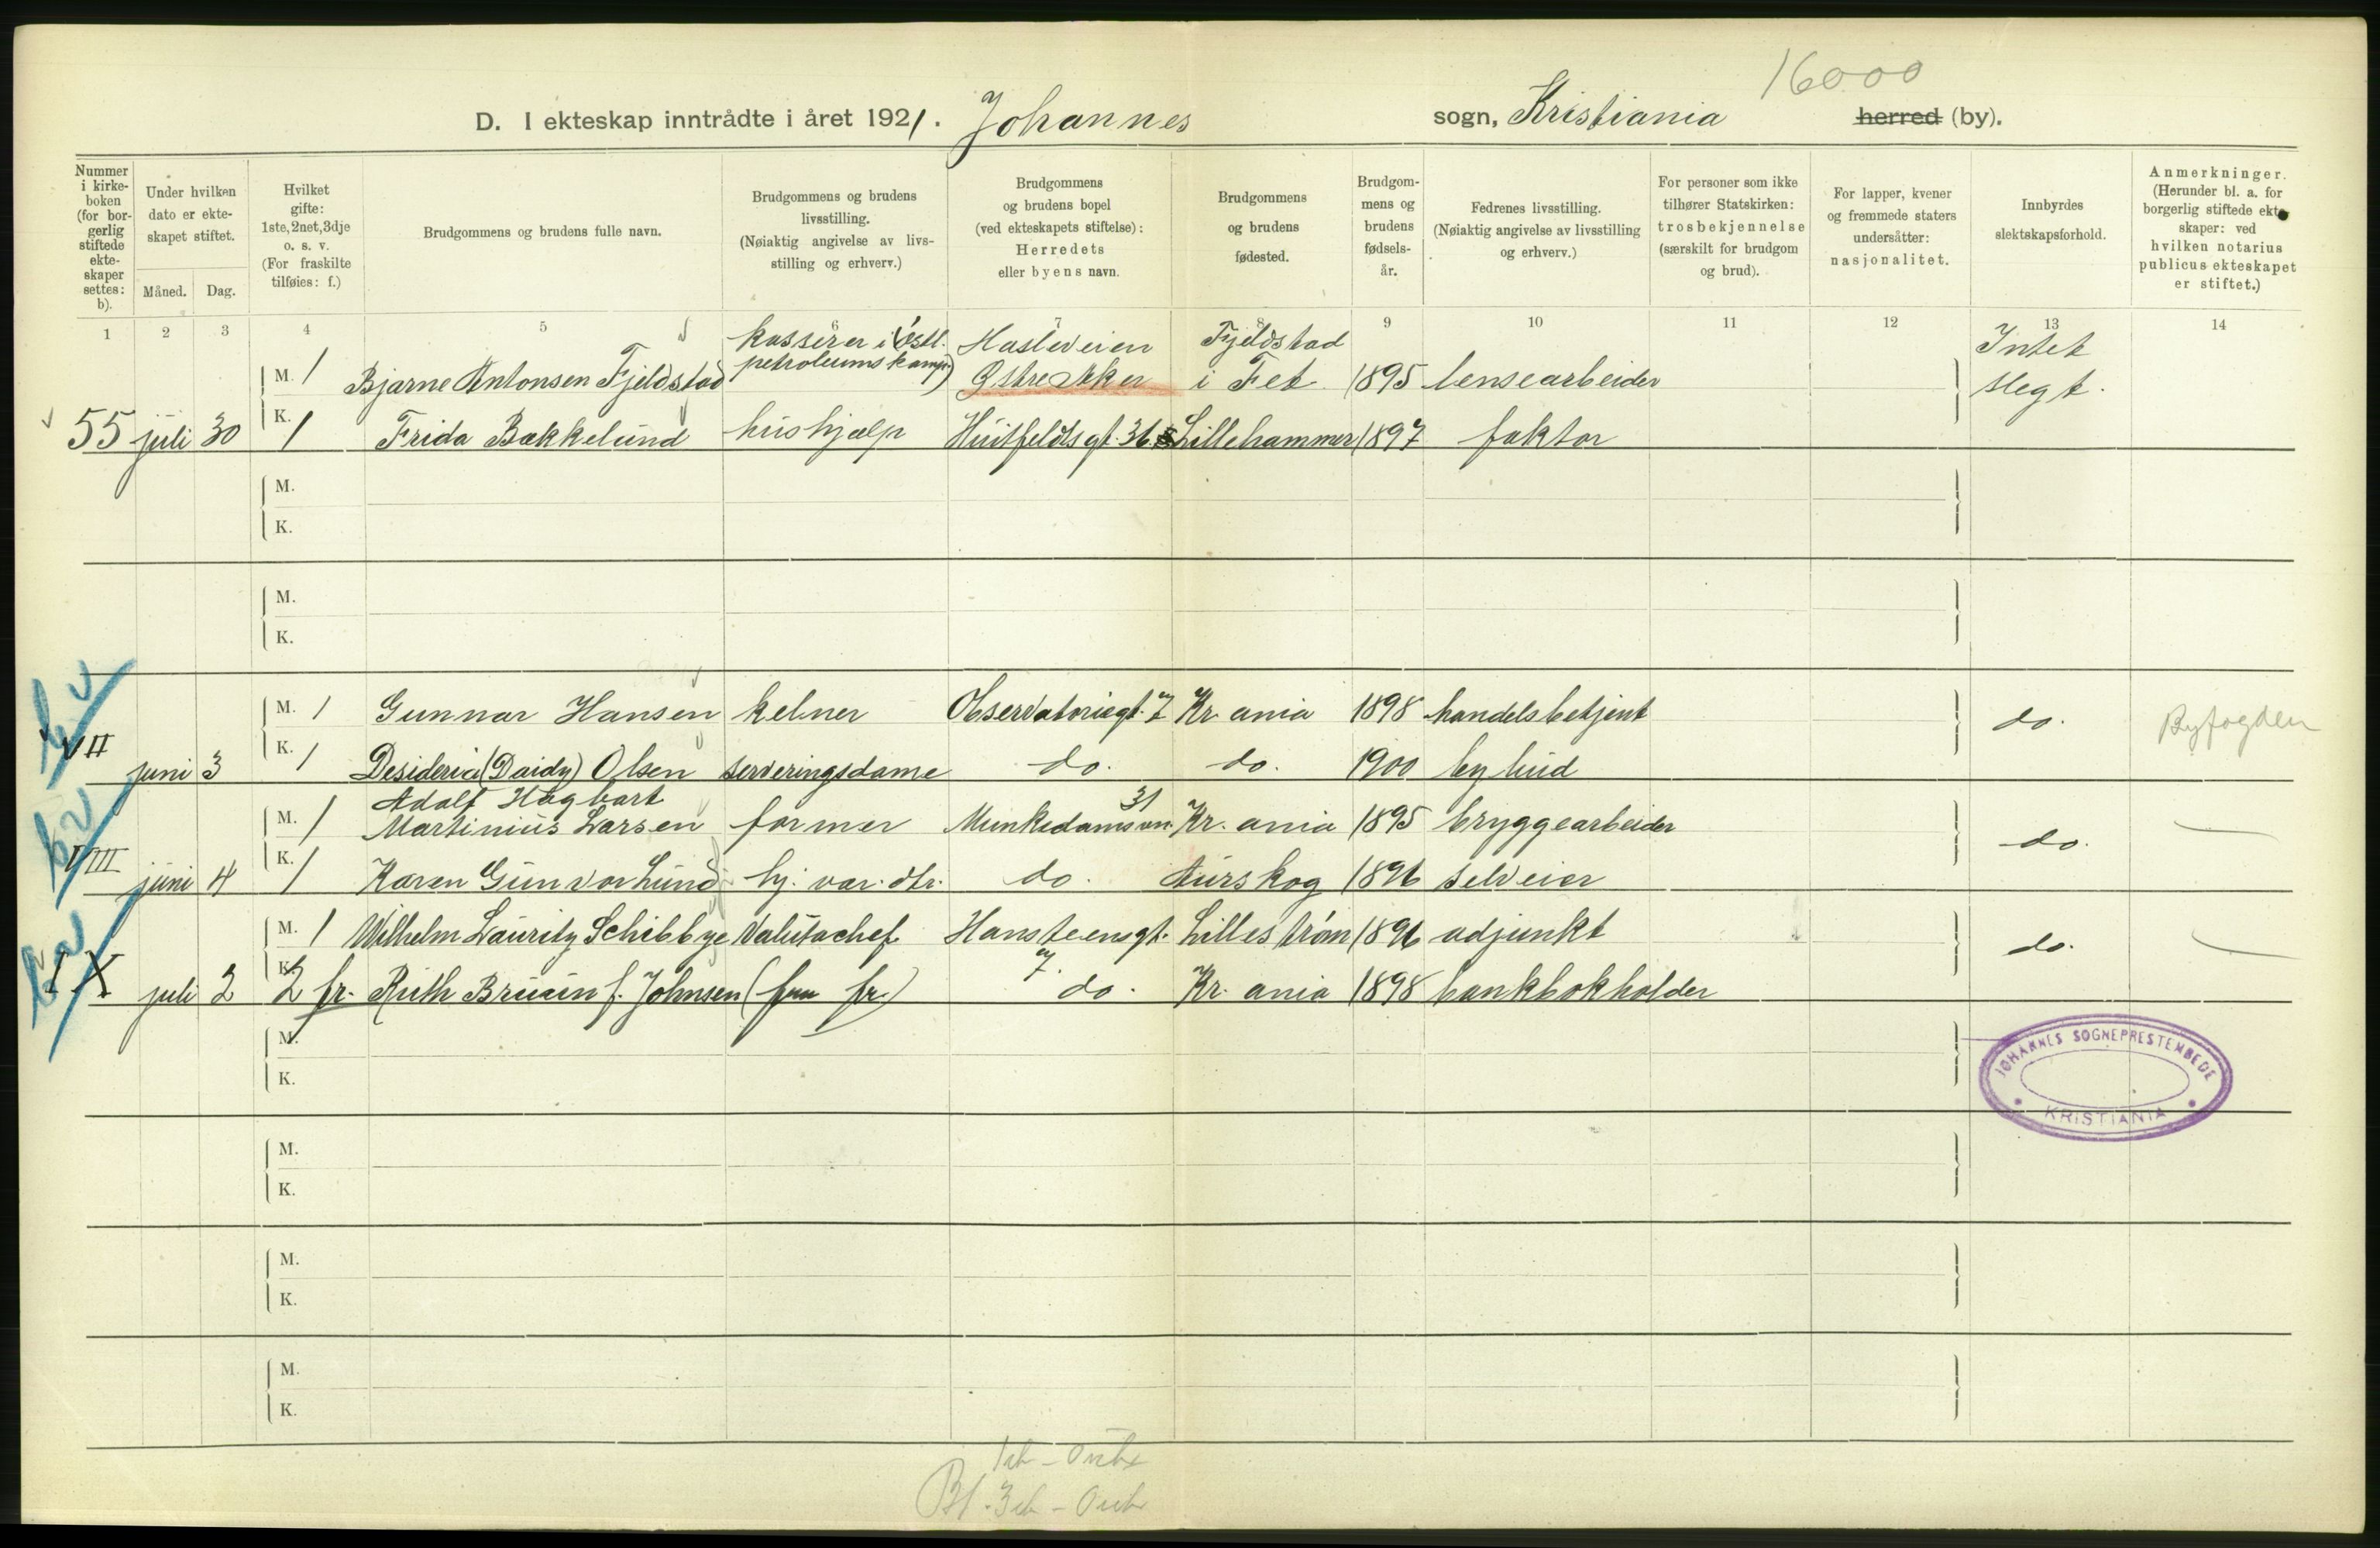 16000
D. I ekteskap inntrådte i året 1921. Johannes sogn, Kristiania herred (by).
Nummer i kirke-boken (for bor-gerlig stiftede ekte-skaper settes: b).
Under hvilken dato er ekte-skapet stiftet.
Måned. Dag.
Hvilket gifte: 1ste, 2net, 3dje o. s. v. (For fraskilte tilføies: f.)
Brudgommens og brudens fulle navn.
Brudgommens og brudens livsstilling. (Nøiaktig angivelse av livs-stilling og erhverv.)
Brudgommens og brudens bopel (ved ekteskapets stiftelse): Herredets eller byens navn.
Brudgommens og brudens fødested.
Brudgom-mens og brudens fødsels-år.
Fedrenes livsstilling. (Nøiaktig angivelse av livsstilling og erhverv.)
For personer som ikke tilhører Statskirken: trosbekjennelse (særskilt for brudgom og brud).
For lapper, kvener og fremmede staters undersåtter: nasjonalitet.
Innbyrdes slektskapsforhold.
Anmerkninger. (Herunder bl. a. for borgerlig stiftede ekte-skaper: ved hvilken notarius publicus ekteskapet er stiftet.)
1 2 3 4 5 6 7 8 9 10 11 12 13 14
kasserer i Østl. Hasleveien Fjeldstad Intet
M. 1 Bjarne Antonsen Fjeldstad petroleumskomp) Østre Aker i Fet 1895 lensearbeider slegt.
55 juli 30 K. 1 Frida Bækkelund hushjælp Huitfeldtsgt. 36 Lillehammer 1897 faktor
M.
K.
M.
K.
M. 1 Gunnar Hansen kelner Observatoriegt. 7 Kr. ania 1898 handelsbetjent do. Byfogden
VII juni 3 K. 1 Desideria (Daidy) Olsen serveringsdame do. do. 1900 bybud
Adolf Hagbart 31
M. 1 Martinius Larsen former Munkedamsvn. Kr. ania 1895 bryggearbeider do.
VIII juni 4 K. 1 Karen Gunvor Lund hj. var. dtr. do. Aurskog 1896 selveier
M. 1 Wilhelm Lauritz Schibbye Valutachef Hansteensgt. 7. Lillestrøm 1896 adjunkt do.
IX juli 2 K. 2 fr. Ruth Bruun f. Johnsen (fru fr.) do. Kr. ania 1898 bankbokholder
M.
K.
JOHANNES SOGNEPRESTEMBEDE
KRISTIANIA
M.
K.
M.
K.
M.
K.